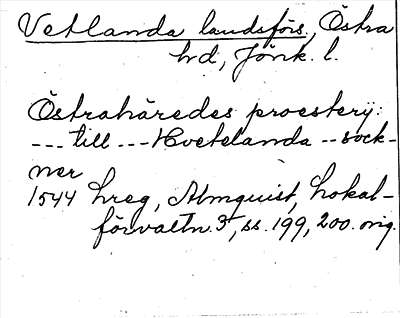 Vetlanda landsförs., Östra
hd, Jönk. l.
Östrahäredes proesterij:
--- till --- Hvetelanda -- sock-
ner
1544 hreg, Almquist, Lokal-
förvaltn. 3, ss. 199, 200. orig.